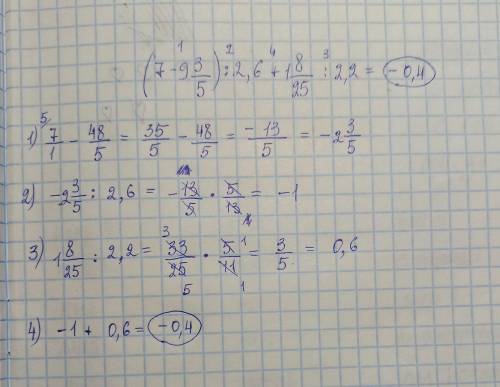 (7 - 9 3/5) : 2,6 + 1 8/25 : 2,2 = -0,4
1) 7/1 - 48/5 = 35/5 - 48/5 = -13/5 = -2 3/5
2) -2 3/5 : 2,6 = -13/5 · 5/13 = -1
3) 1 8/25 : 2,2 = 33/25 · 5/11 = 3/5 = 0,6
4) -1 + 0,6 = -0,4